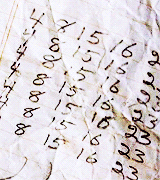 4 8 15 16
4 8 15 16 2
4 8 15 16 2
4 8 15 16 23
4 8 15 16 23
8 15 16 23
8 15 16 23